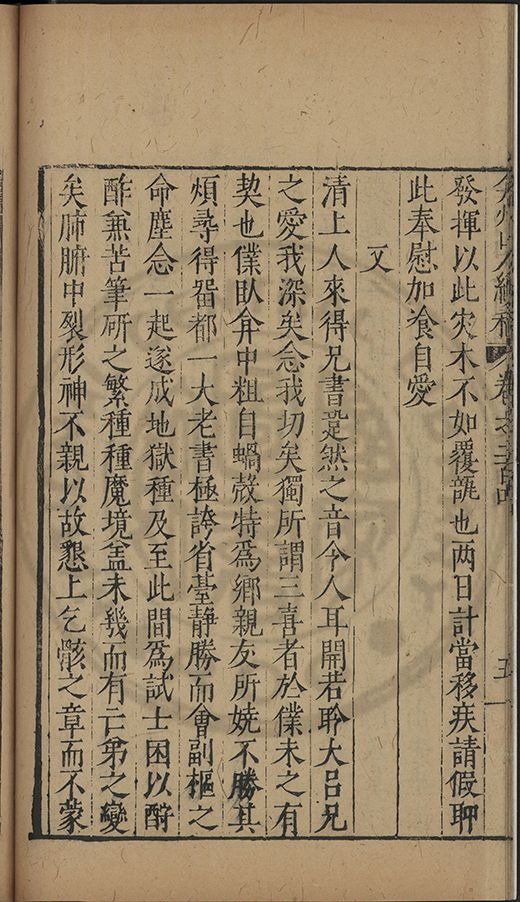 弇州山人續稿 卷之二百 五
發揮以此灾木不如覆瓿也两日計當移疾請假聊
此奉慰加飡自愛
又
清上人來得兄書跫然之音令人耳開若聆大呂兄
之愛我深矣念我切矣獨所謂三喜者於僕未之有
契也僕臥弇中粗自蝸殻特爲鄉親友所嬈不勝其
煩尋得畱都一大老書極誇省臺靜勝而會副樞之
命塵念一起遂成地獄種及至此間爲試士困以酧
酢兼苦筆硏之繁種種魔境盖未幾而有亡弟之變
矣肺腑中裂形神不親以故懇上乞骸之章而不蒙